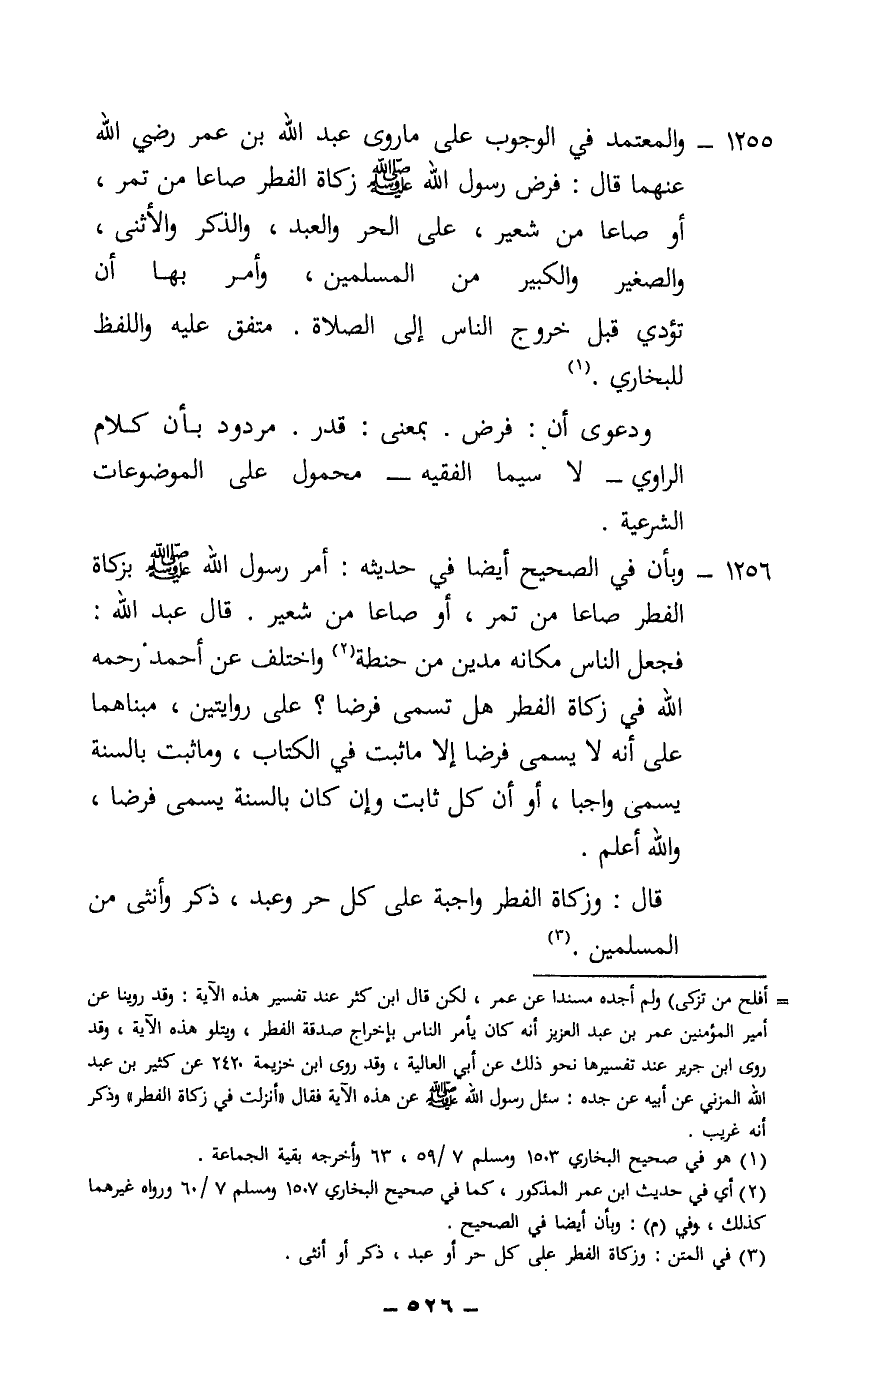 ١٢٥٥ ــ والمعتمد في الوجوب على ماروى عبد الله بن عمر رضي الله
عنهما قال : فرض رسول الله ﷺ زكاة الفطر صاعا من تمر ،
أو صاعا من شعير ، على الحر والعبد ، والذكر والأنثى ،
والصغير والكبير من المسلمين ، وأمر بها أن
تؤدي قبل خروج الناس إلى الصلاة . متفق عليه واللفظ
للبخاري .(١)
ودعوى أن : فرض . بمعنى : قدر . مردود بأن كلام
الراوي ــ لا سيما الفقيه ــ محمول على الموضوعات
الشرعية .
١٢٥٦ ــ وبأن في الصحيح أيضا في حديثه : أمر رسول الله ﷺ بزكاة
الفطر صاعا من تمر ، أو صاعا من شعير . قال عبد الله :
فجعل الناس مكانه مدين من حنطة(٢) واختلف عن أحمد رحمه
الله في زكاة الفطر هل تسمى فرضا ؟ على روايتين ، مبناهما
على أنه لا يسمى فرضا إلا ماثبت في الكتاب ، وماثبت بالسنة
يسمى واجبا ، أو أن كل ثابت وإن كان بالسنة يسمى فرضا ،
والله أعلم .
قال : وزكاة الفطر واجبة على كل حر وعبد ، ذكر وأنثى من
المسلمين .(٣)
= أفلح من تزكى) ولم أجده مسندا عن عمر ، لكن قال ابن كثر عند تفسير هذه الآية : وقد روينا عن
أمير المؤمنين عمر بن عبد العزيز أنه كان يأمر الناس بإخراج صدقة الفطر ، ويتلو هذه الآية ، وقد
روى ابن جرير عند تفسيرها نحو ذلك عن أبي العالية ، وقد روى ابن خزيمة ٢٤٢٠ عن كثير بن عبد
الله المزني عن أبيه عن جده : سئل رسول الله ﷺ عن هذه الآية فقال «أنزلت في زكاة الفطر» وذكر
أنه غريب .
(١) هو في صحيح البخاري ١٥٠٣ ومسلم ٧ /٥٩ ، ٦٣ وأخرجه بقية الجماعة .
(٢) أي في حديث ابن عمر المذكور ، كما في صحيح البخاري ١٥٠٧ ومسلم ٧ /٦٠ ورواه غيرهما
كذلك ، وفي (م) : وبأن أيضا في الصحيح .
(٣) في المتن : وزكاة الفطر على كل حر أو عبد ، ذكر أو أنثى .
ــ ٥٢٦ ــ